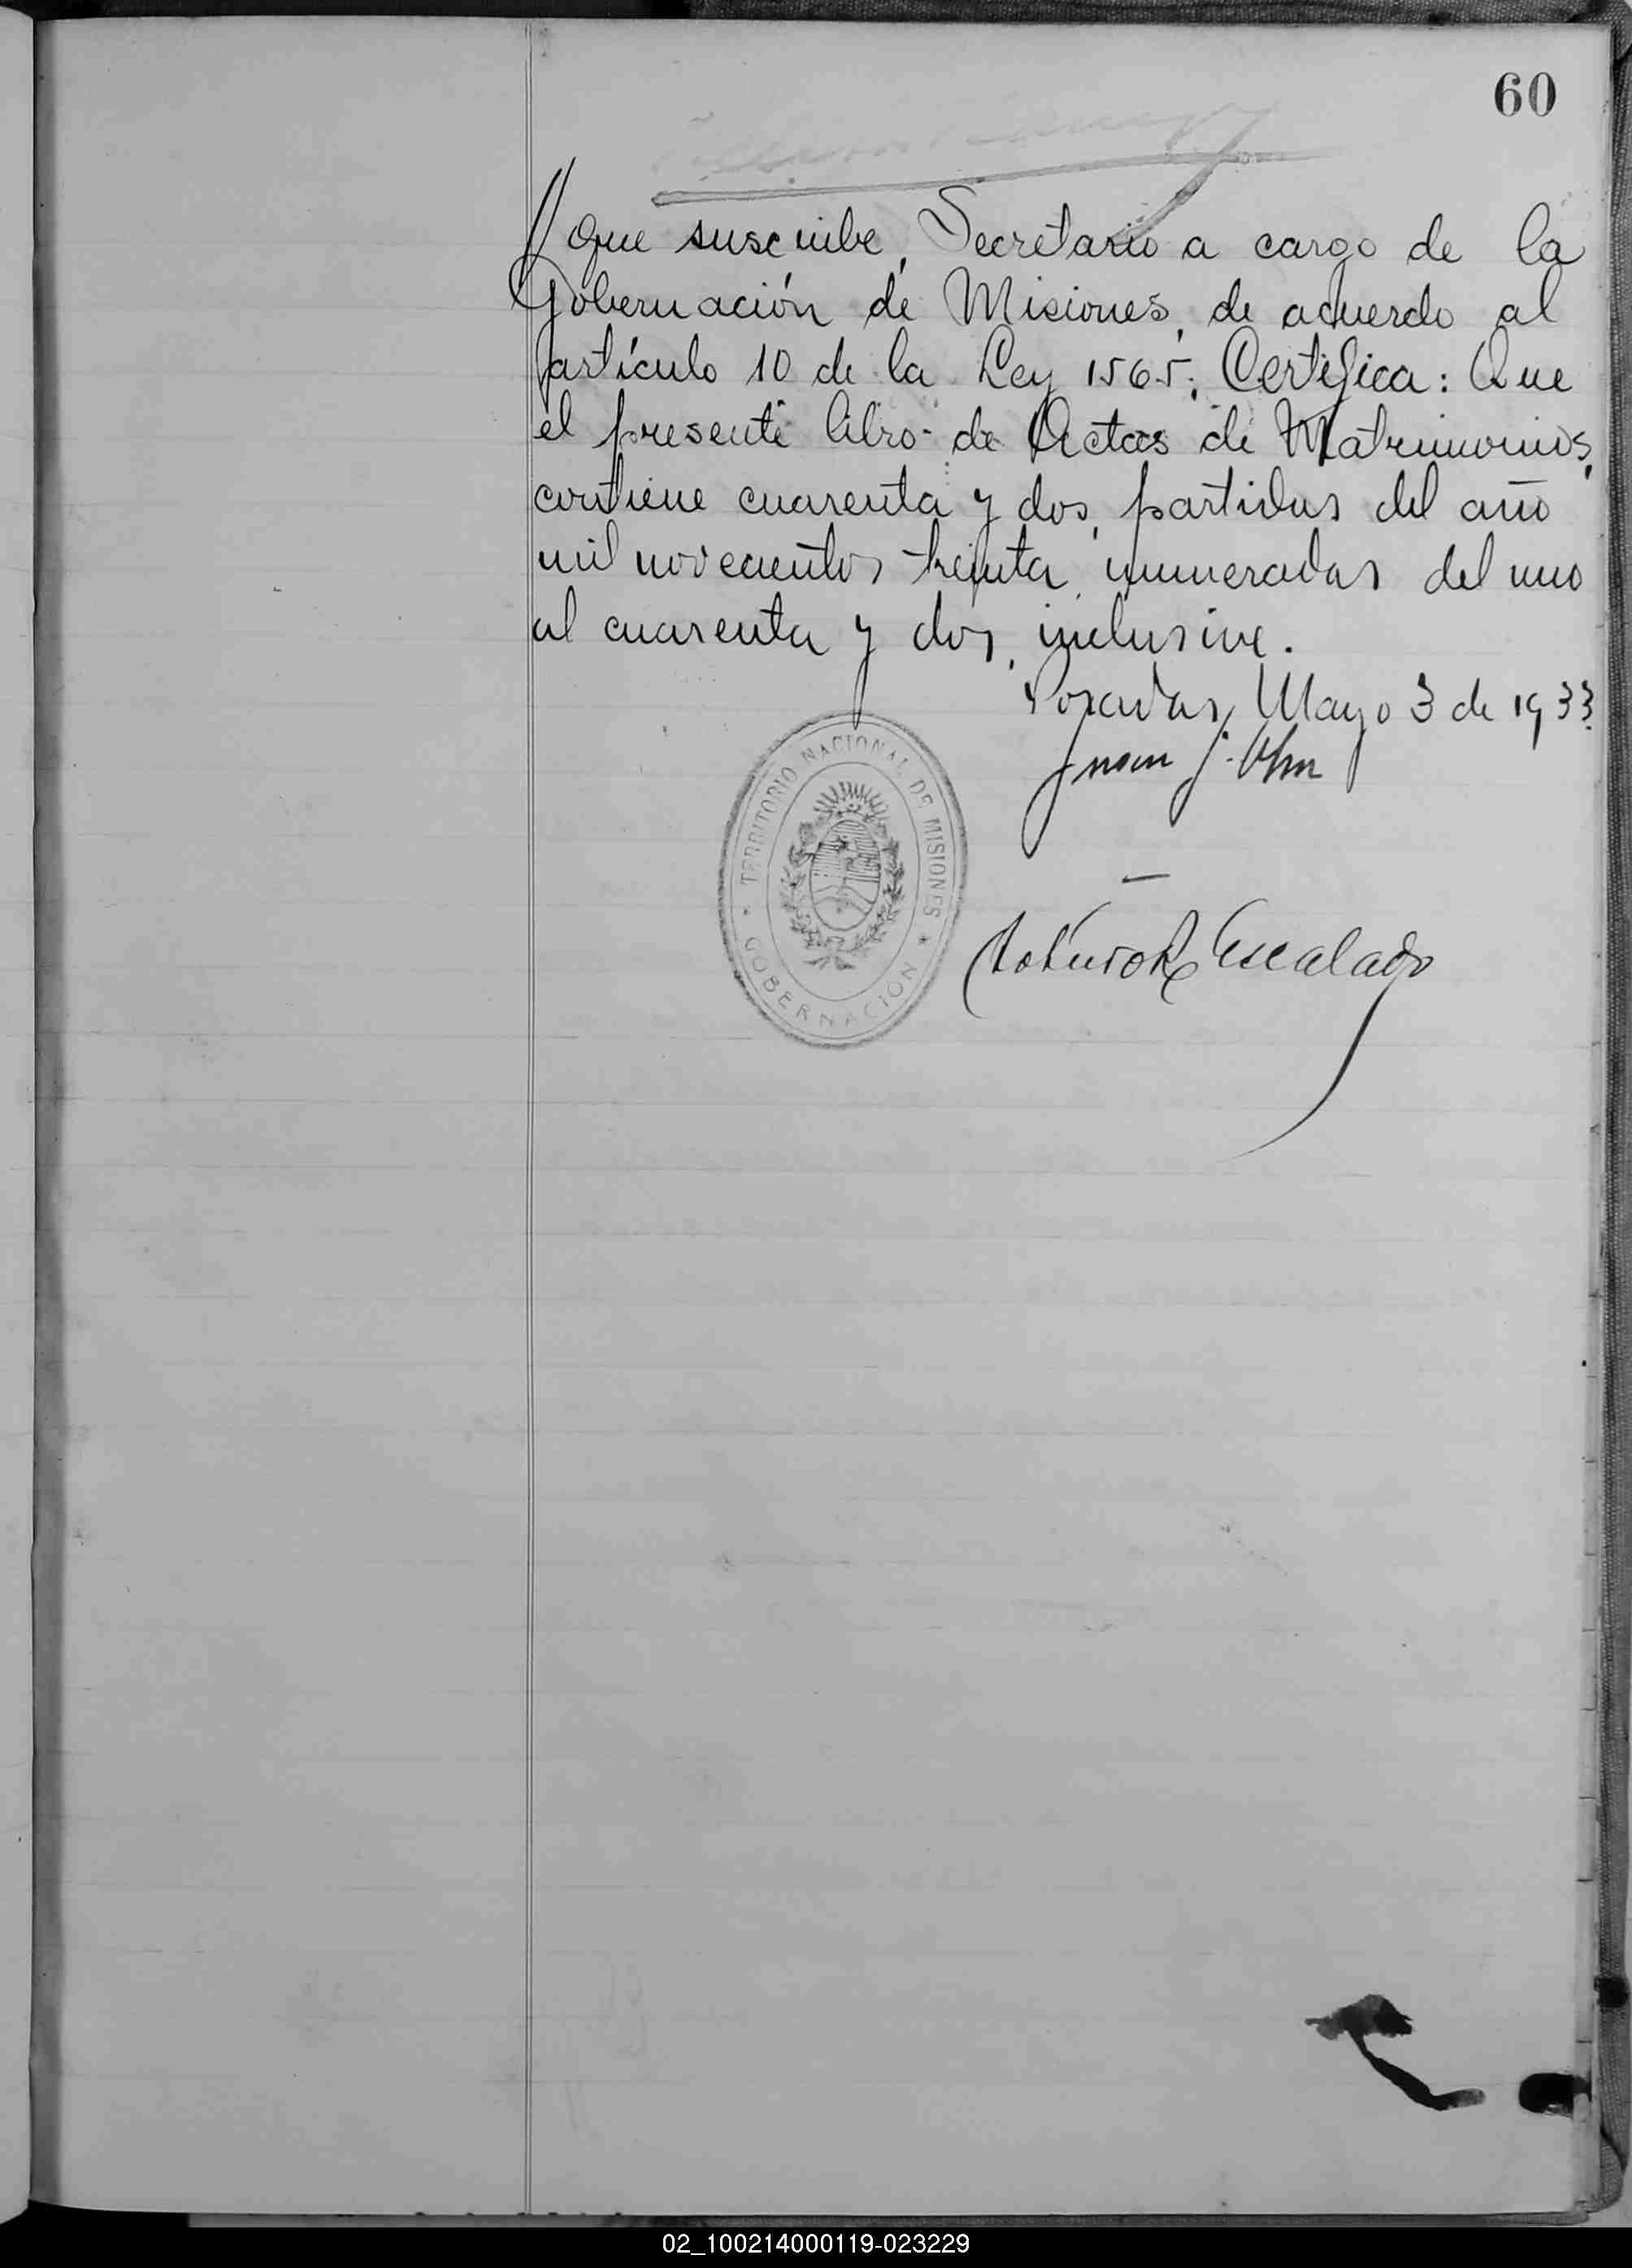 60
que suscribe, Secretario a cargo de la
Gobernación de Misiones, de acuerdo al
artículo 10 de la Ley 1565, Certifica: Que
el presente libro de Actas de Matrimonios,
contiene cuarenta y dos, partidas del año
mil novecientos treinta, numeradas del uno
al cuarenta y dos, inclusive.
Posadas, Mayo 3 de 1933
Juan J.
TERRITORIO NACIONAL DE MISIONES
GOBERNACION
Escalado
02_100214000119-023229